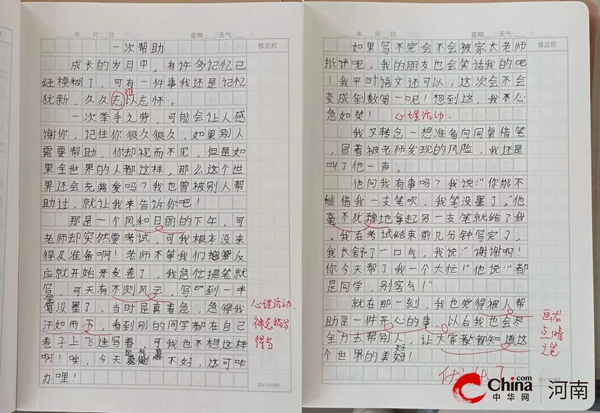 年 月 日 星期 天气
修正栏
一次帮助
成长的岁月中，有许多记忆已
经模糊了，可有一件事我还是记忆
犹新，久久无以忘怀。
一次举手之劳，可能会让人感
谢你，记住你很久很久，如果别人
需要帮助，你却视而不见，但是如
果全世界的人都这样，那么这个世
界还会充满爱吗？我也曾被别人帮
助过，就让我来告诉你吧！
那是一个风和日丽的下午，可
老师却突然要考试，可我根本没来
得及准备啊！老师不等我们
应就开始开发卷了，我急忙提笔就
写，可天有不测风云，写到一半
没墨了，当时是真着急，急得我
汗如雨下，看到别的同学都在自己
卷子上飞速写着，可我也不想这样
啊！唉，今天 不好，这可咋
办哩！
心理活动
神态描写
得当
年 月 日 星期 天气
修正栏
如果写不完会不会被家大老师
批评呢，我的朋友也会笑话我的吧
！我平时语文还可以，这次会不会
变成倒数第一呢！想到这，我更心
急如焚！ 心理活动
我又转念一想准备向同桌借笔
，冒着被老师发现的风险，我还是
叫了他一声。
他问我有事吗？我说“你能不
能借我一支笔呗，我笔没墨了，”他
毫不犹豫地拿起另一支笔就给了我
，我在考试结束前几分钟写完了，
我长舒了一口气，我说“谢谢啊！
你今天帮了我一个大忙！”他说“都
是同学，别客气！”
就在那一刻，我也觉得被人帮
助是一件开心的事，以后我也会尽
全力去帮别人，让大家都知道这
个世界的美好！
点睛
之笔
China.com
中华网
河南